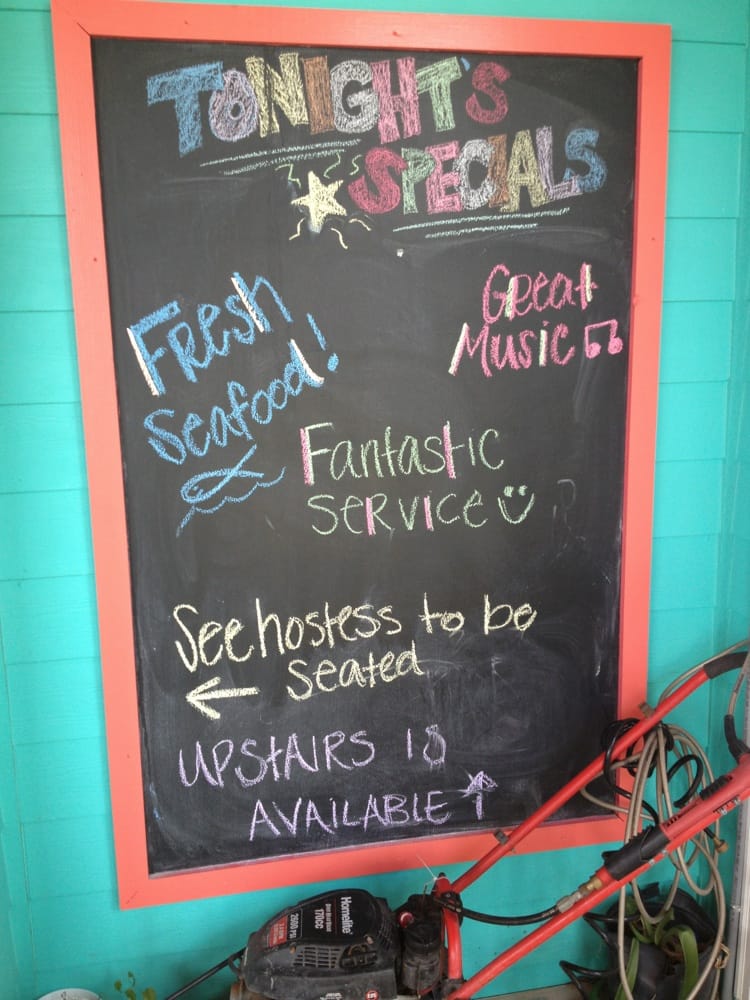 TONIGHT'S
SPECIALS
Fresh
Seafood!
Great
Music
Fantastic
Service
See hostess to be
seated
UPSTAIRS IS
AVAILABLE
Homelite
170cc
2600 PSI